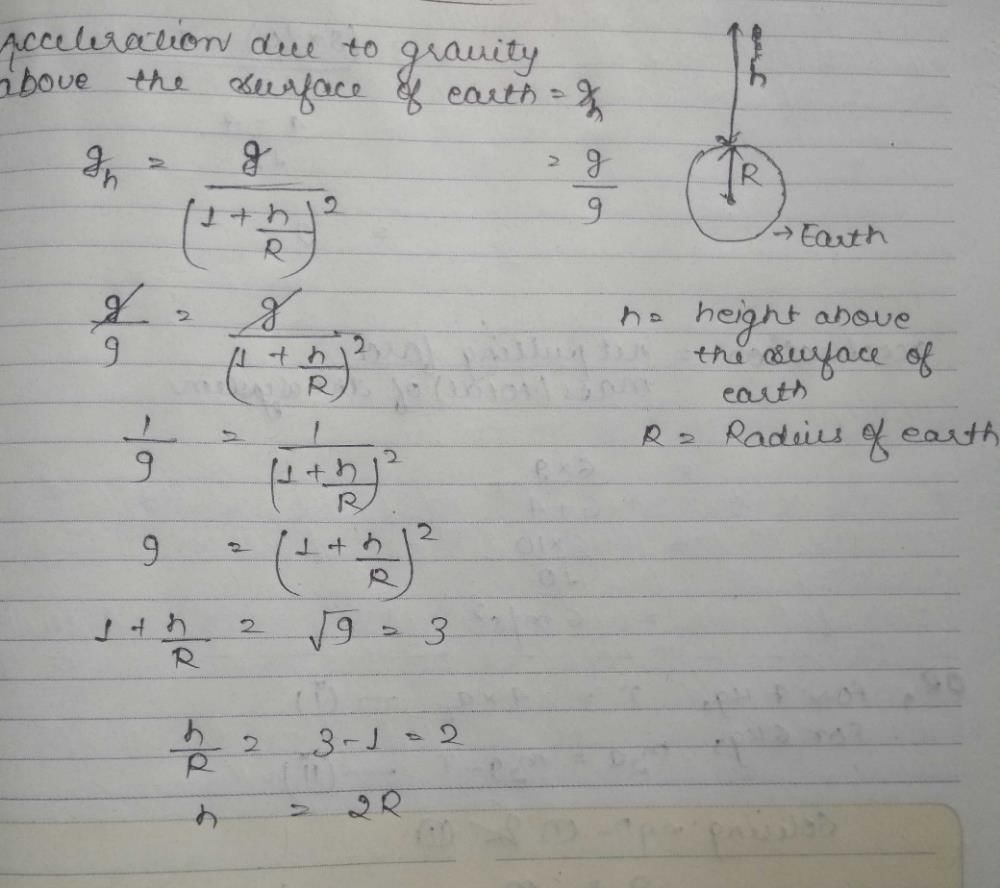 Acceleration due to gravity
above the surface of earth = gₕ
gₕ = g / (1 + h/R)² = g/9
h
R
→ Earth
g/9 = g / (1 + h/R)²
h = height above
the surface of
earth
R = Radius of earth
1/9 = 1 / (1 + h/R)²
9 = (1 + h/R)²
1 + h/R = √9 = 3
h/R = 3 - 1 = 2
h = 2R